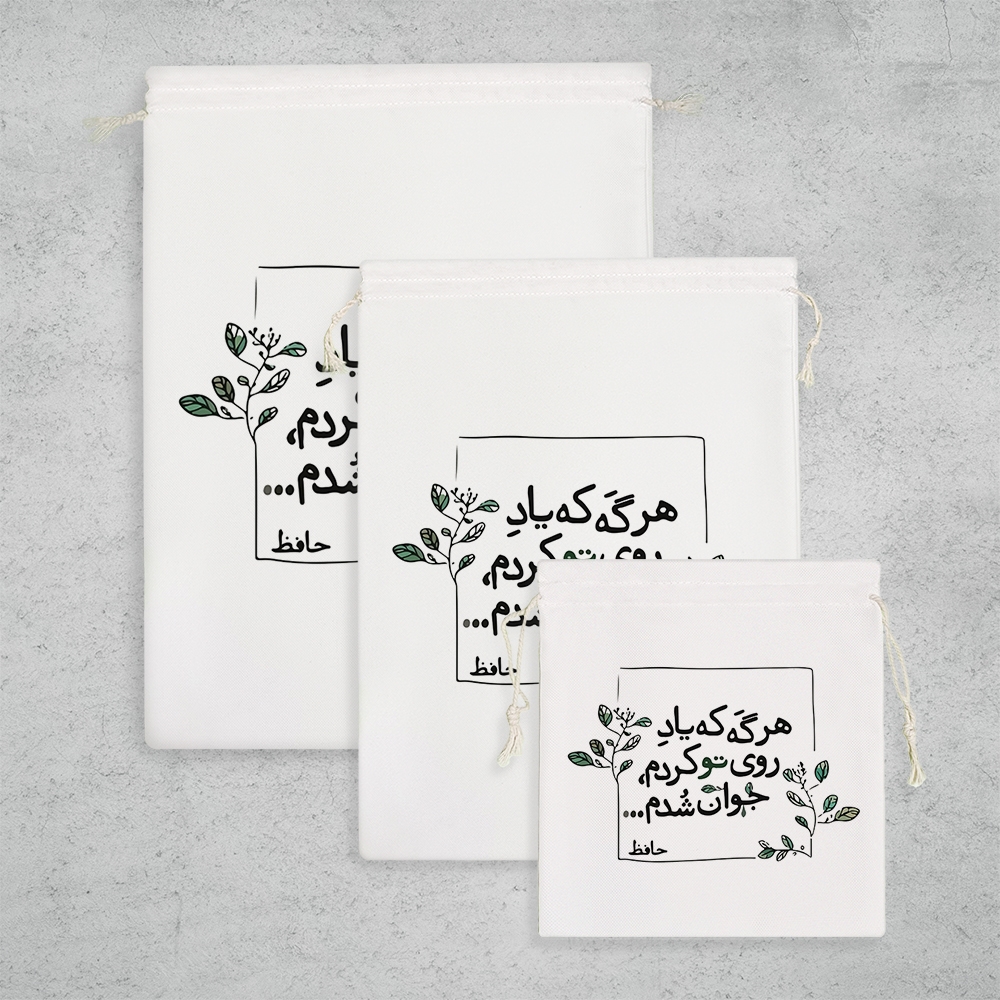 یادِ
کردم،
شدم...
حافظ
هر گَه که یادِ
روی تو کردم،
شدم...
حافظ
هر گَه که یادِ
روی تو کردم،
جوان شُدم...
حافظ